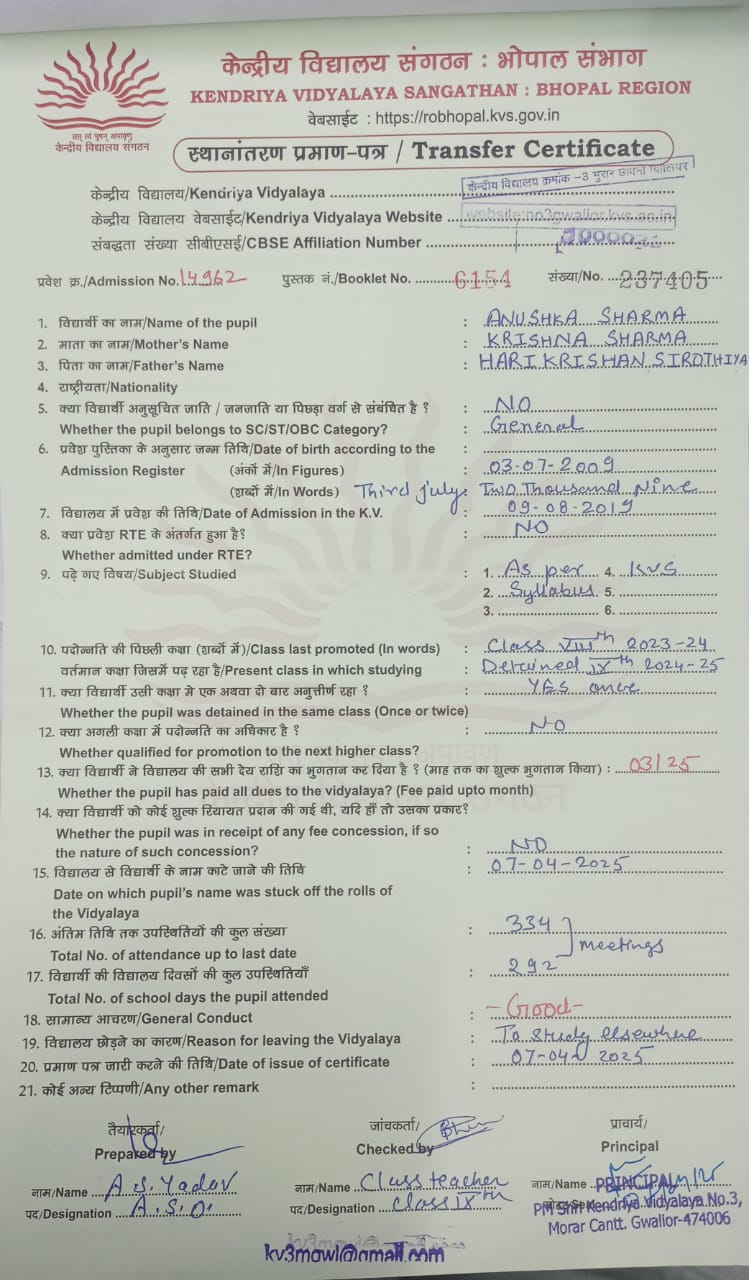 केन्द्रीय विद्यालय संगठन : भोपाल संभाग
KENDRIYA VIDYALAYA SANGATHAN : BHOPAL REGION
वेबसाईट : https://robhopal.kvs.gov.in
तत् त्वं पूषन् अपावृणु
केन्द्रीय विद्यालय संगठन
स्थानांतरण प्रमाण-पत्र / Transfer Certificate
केन्द्रीय विद्यालय/Kendriya Vidyalaya केन्द्रीय विद्यालय क्रमांक -3 मुरार छावनी ग्वालियर
केन्द्रीय विद्यालय वेबसाईट/Kendriya Vidyalaya Website website:no3gwalior.kvs.ac.in
संबद्धता संख्या सीबीएसई/CBSE Affiliation Number
प्रवेश क्र./Admission No. 14962 पुस्तक नं./Booklet No. 6154 संख्या/No. 237405
1. विद्यार्थी का नाम/Name of the pupil : ANUSHKA SHARMA
2. माता का नाम/Mother's Name : KRISHNA SHARMA
3. पिता का नाम/Father's Name : HARI KRISHAN SIROTHIYA
4. राष्ट्रीयता/Nationality
5. क्या विद्यार्थी अनुसूचित जाति / जनजाति या पिछड़ा वर्ग से संबंधित है ? : NO
Whether the pupil belongs to SC/ST/OBC Category? : General
6. प्रवेश पुस्तिका के अनुसार जन्म तिथि/Date of birth according to the :
Admission Register (अंकों में/In Figures) : 03-07-2009
(शब्दों में/In Words) Third july Two Thousand Nine
7. विद्यालय में प्रवेश की तिथि/Date of Admission in the K.V. : 09-08-2019
8. क्या प्रवेश RTE के अंतर्गत हुआ है? : NO
Whether admitted under RTE?
9. पढ़े गए विषय/Subject Studied : 1. As per 4. KVS
2. Syllabus 5.
3. 6.
10. पदोन्नति की पिछली कक्षा (शब्दों में)/Class last promoted (In words) : Class VIIIth 2023-24
वर्तमान कक्षा जिसमें पढ़ रहा है/Present class in which studying : Detained IXth 2024-25
11. क्या विद्यार्थी उसी कक्षा मे एक अथवा दो बार अनुत्तीर्ण रहा ? : YES once
Whether the pupil was detained in the same class (Once or twice)
12. क्या अगली कक्षा में पदोन्नति का अधिकार है ? : NO
Whether qualified for promotion to the next higher class?
13. क्या विद्यार्थी ने विद्यालय की सभी देय राशि का भुगतान कर दिया है ? (माह तक का शुल्क भुगतान किया) : 03/25
Whether the pupil has paid all dues to the vidyalaya? (Fee paid upto month)
14. क्या विद्यार्थी को कोई शुल्क रियायत प्रदान की गई थी, यदि हाँ तो उसका प्रकार?
Whether the pupil was in receipt of any fee concession, if so
the nature of such concession? : NO
15. विद्यालय से विद्यार्थी के नाम काटे जाने की तिथि : 07-04-2025
Date on which pupil's name was stuck off the rolls of
the Vidyalaya
16. अंतिम तिथि तक उपस्थितियों की कुल संख्या : 334
Total No. of attendance up to last date meetings
17. विद्यार्थी की विद्यालय दिवसों की कुल उपस्थितियाँ : 292
Total No. of school days the pupil attended
18. सामान्य आचरण/General Conduct : -Good-
19. विद्यालय छोड़ने का कारण/Reason for leaving the Vidyalaya : To study elsewhere
20. प्रमाण पत्र जारी करने की तिथि/Date of issue of certificate : 07-04-2025
21. कोई अन्य टिप्पणी/Any other remark :
तैयारकर्ता/ जांचकर्ता/ प्राचार्य/
Prepared by Checked by Principal
नाम/Name A.S. Yadav नाम/Name Class teacher नाम/Name PRINCIPAL
पद/Designation A.S.O. पद/Designation Class IXth PM Shri Kendriya Vidyalaya No.3,
Morar Cantt. Gwalior-474006
kv3mowl@gmail.com